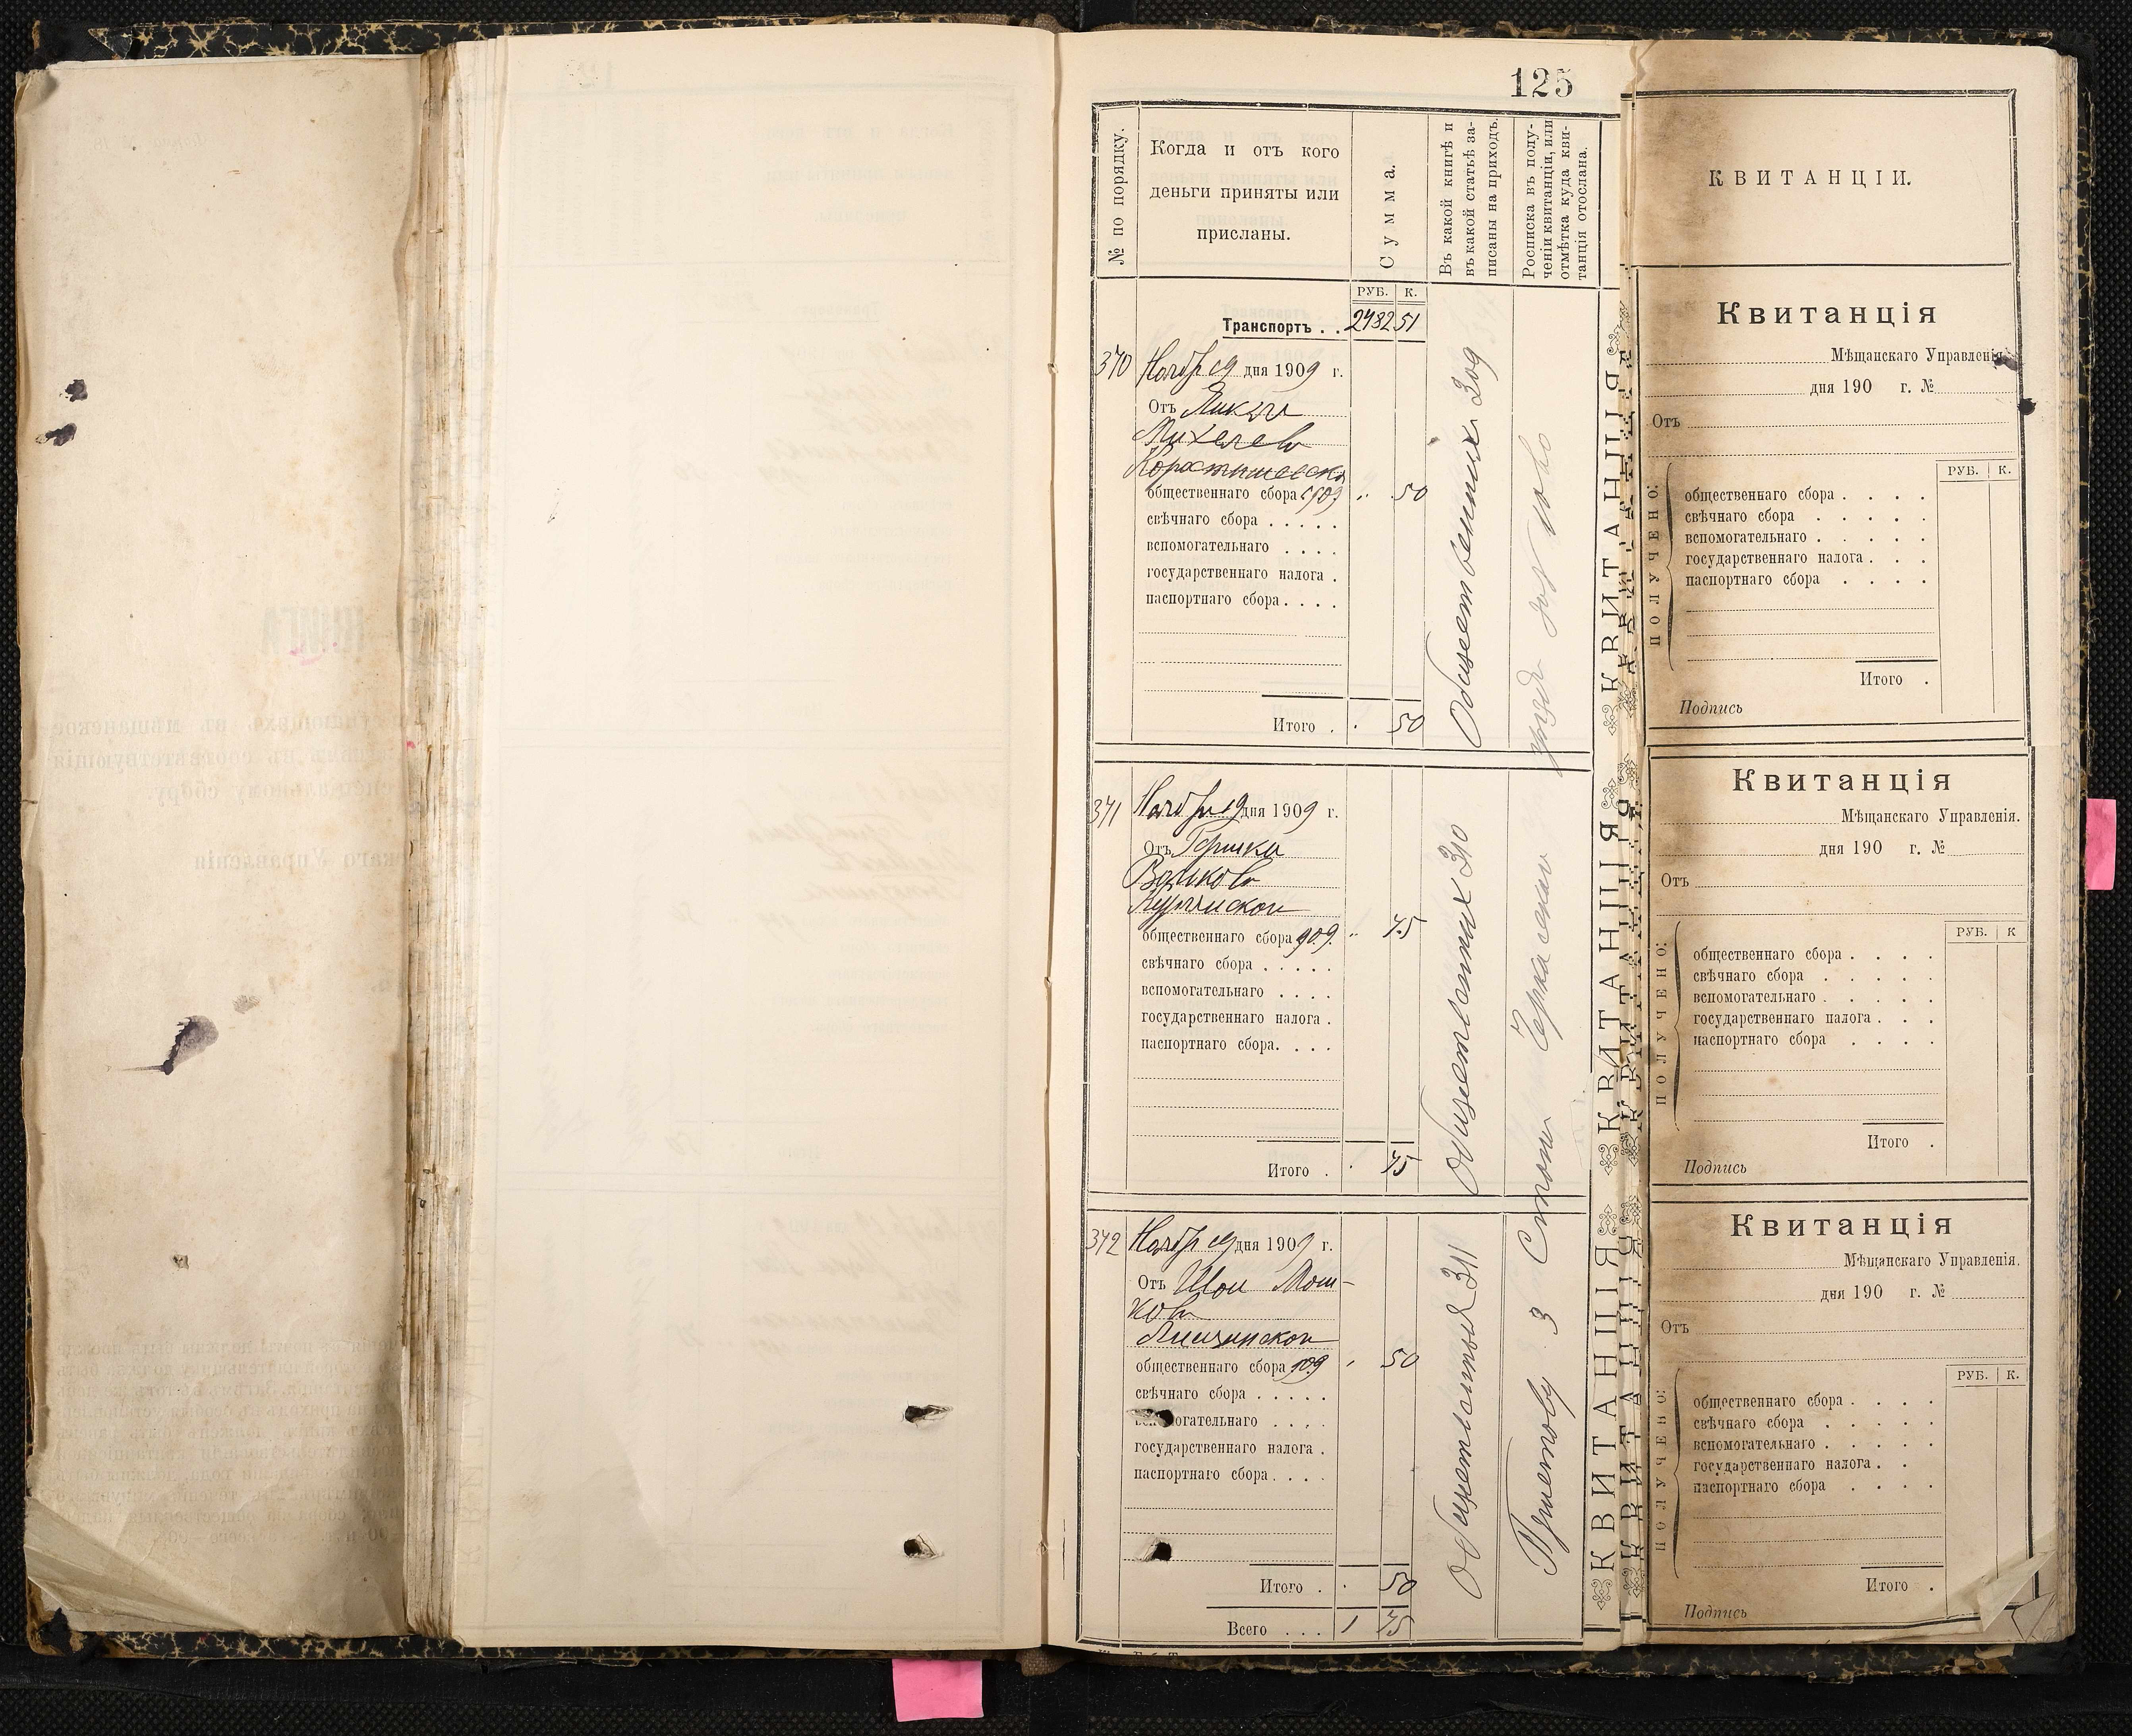 125
№ по порядку.
Когда и отъ кого
деньги приняты или
присланы.
Сумма.
Въ какой книгѣ и
въ какой статьѣ за-
писаны на приходъ.
Росписка въ полу-
ченіи квитанціи, или
отмѣтка куда кви-
танція отослана.
РУБ. К.
Транспортъ . . 2482 51
370 Ноябр 19 дня 1909 г.
Отъ
Михелева
Коростышевск
общественнаго сбора 909 50
свѣчнаго сбора . . . . .
вспомогательнаго . . . .
государственнаго налога .
паспортнаго сбора . . . .
Итого . 50
Общественных 309
371 Ноябр 19 дня 1909 г.
Отъ Гершка
Волькова
общественнаго сбора 909. 75
свѣчнаго сбора . . . . .
вспомогательнаго . . . .
государственнаго налога .
паспортнаго сбора. . . .
Итого . 75
Общественных 310
372 Ноябр 19 дня 1909 г.
Отъ Шои Мош-
кова
Лищинскои
общественнаго сбора 909 50
свѣчнаго сбора . . . . .
вспомогательнаго . . . .
государственнаго налога .
паспортнаго сбора . . . .
Итого . 50
Всего . . . 1 75
Общественных 311
Приставу 3 Стана Черкасскаго
КВИТАНЦІЯ КВИТАНЦІЯ КВИТАНЦІЯ КВИТАНЦІЯ
КВИТАНЦІИ.
Квитанція
Мѣщанскаго Управленія.
дня 190 г. №
Отъ
РУБ. К.
ПОЛУЧЕНО:
общественнаго сбора . . . .
свѣчнаго сбора . . . . .
вспомогательнаго . . . . .
государственнаго налога . . .
паспортнаго сбора . . . .
Итого .
Подпись
Квитанція
Мѣщанскаго Управленія.
дня 190 г. №
Отъ
РУБ. К
ПОЛУЧЕНО:
общественнаго сбора . . . .
свѣчнаго сбора . . . . .
вспомогательнаго . . . . .
государственнаго налога . . .
паспортнаго сбора . . . .
Итого .
Подпись
Квитанція
Мѣщанскаго Управленія.
дня 190 г. №
Отъ
РУБ. К.
ПОЛУЧЕНО:
общественнаго сбора . . . .
свѣчнаго сбора . . . . .
вспомогательнаго . . . . .
государственнаго налога . .
паспортнаго сбора . . . .
Итого .
Подпись